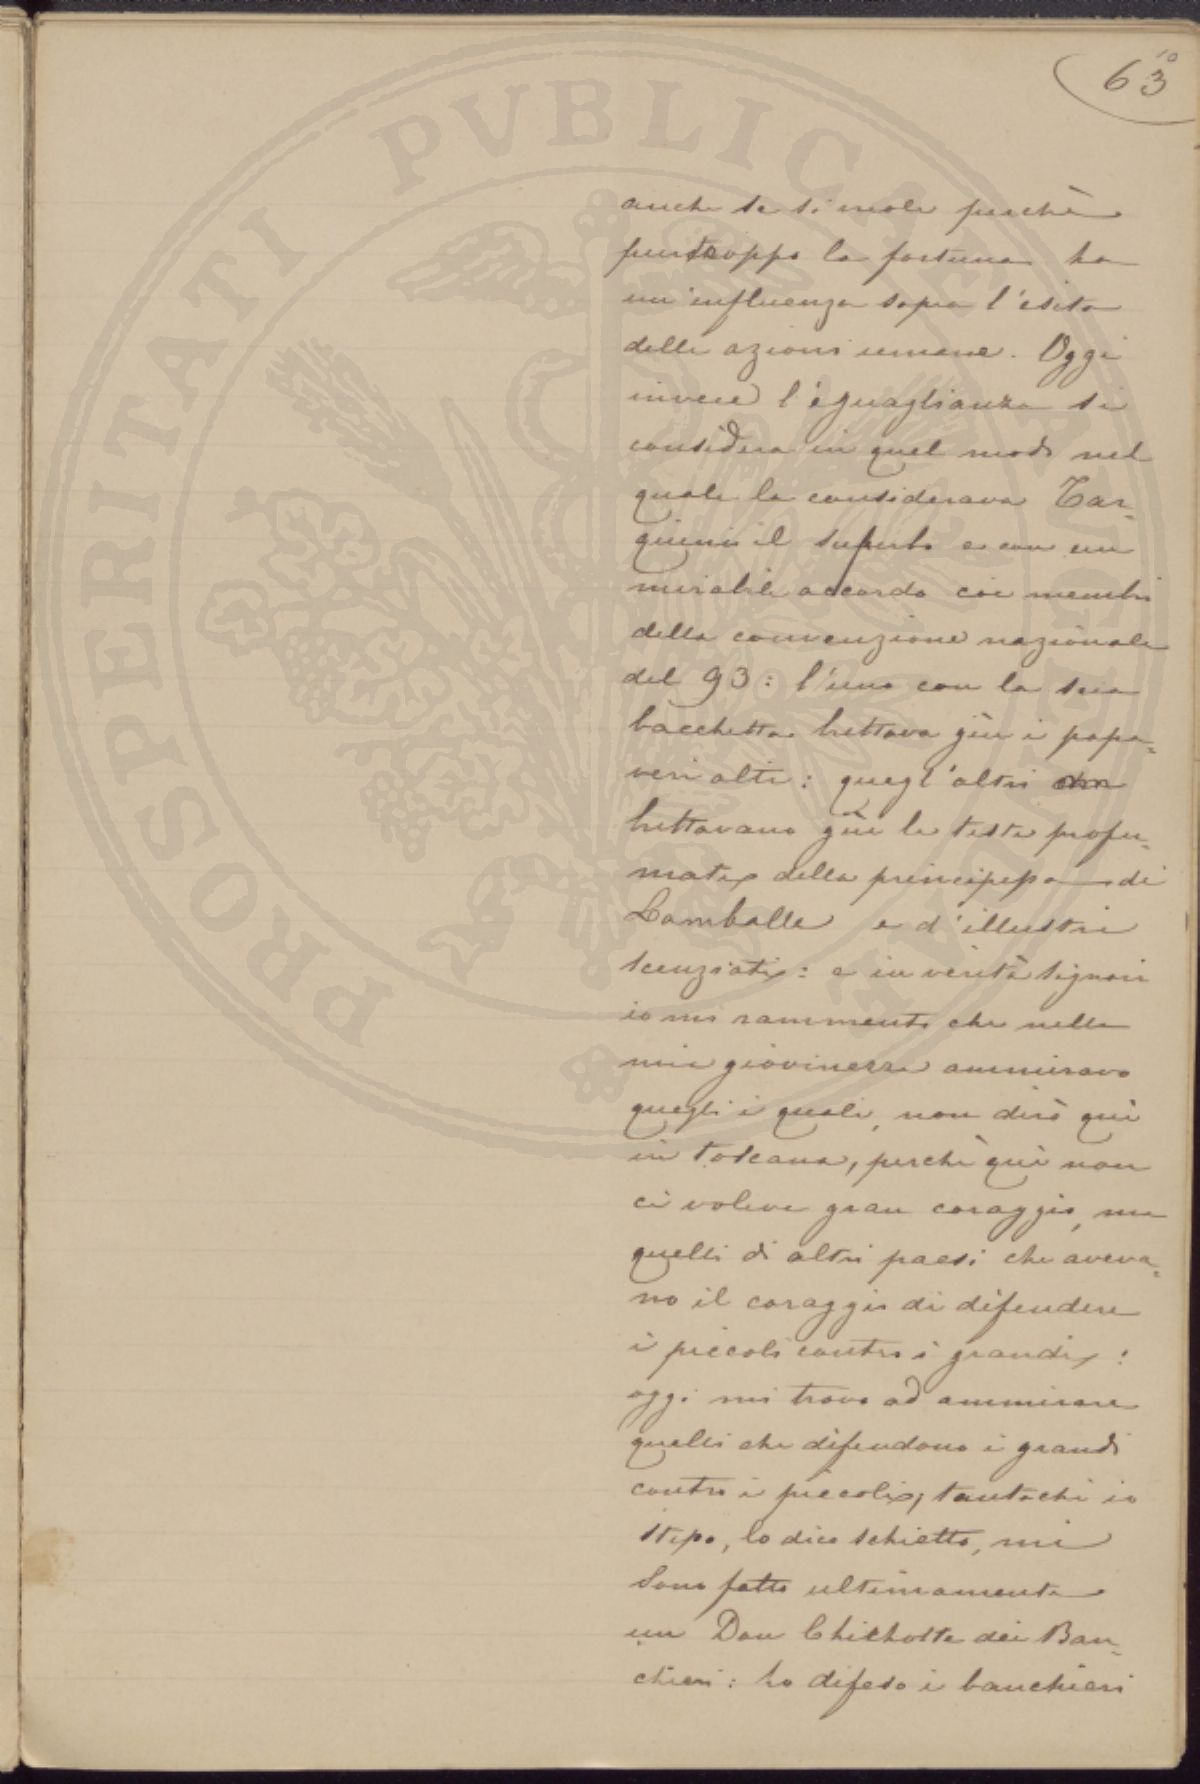 63
10
anche se si vuole perchè
purtroppo la fortuna ha
un'influenza sopra l'esito
delle azioni umane. Oggi
invece l'eguaglianza si
considera in quel modo nel
quale la considerava Tar=
quinio il superbo e con un
mirabile accordo coi membri
della convenzione nazionale
del 93: l'uno con la sua
bacchetta buttava giù i papa=
veri alti: quegl'altri
buttavano giù le teste profu=
mate della principessa di
Lamballe e d'illustri
scenziati: e in verità signori
io mi rammento che nella
mia giovinezza ammiravo
quegli i quali, non dirò quì
in Toscana, perchè quì non
ci voleva gran coraggio, ma
quelli di altri paesi che aveva=
no il coraggio di difendere
i piccoli contro i grandi:
oggi mi trovo ad ammirare
quelli che difendono i grandi
contro i piccoli; tantochè io
stesso, lo dico schietto, mi
sono fatto ultimamente
un Don Chichotte dei Ban=
chieri: ho difeso i banchieri
PROSPERITATI PVBLICAE AVGENDAE